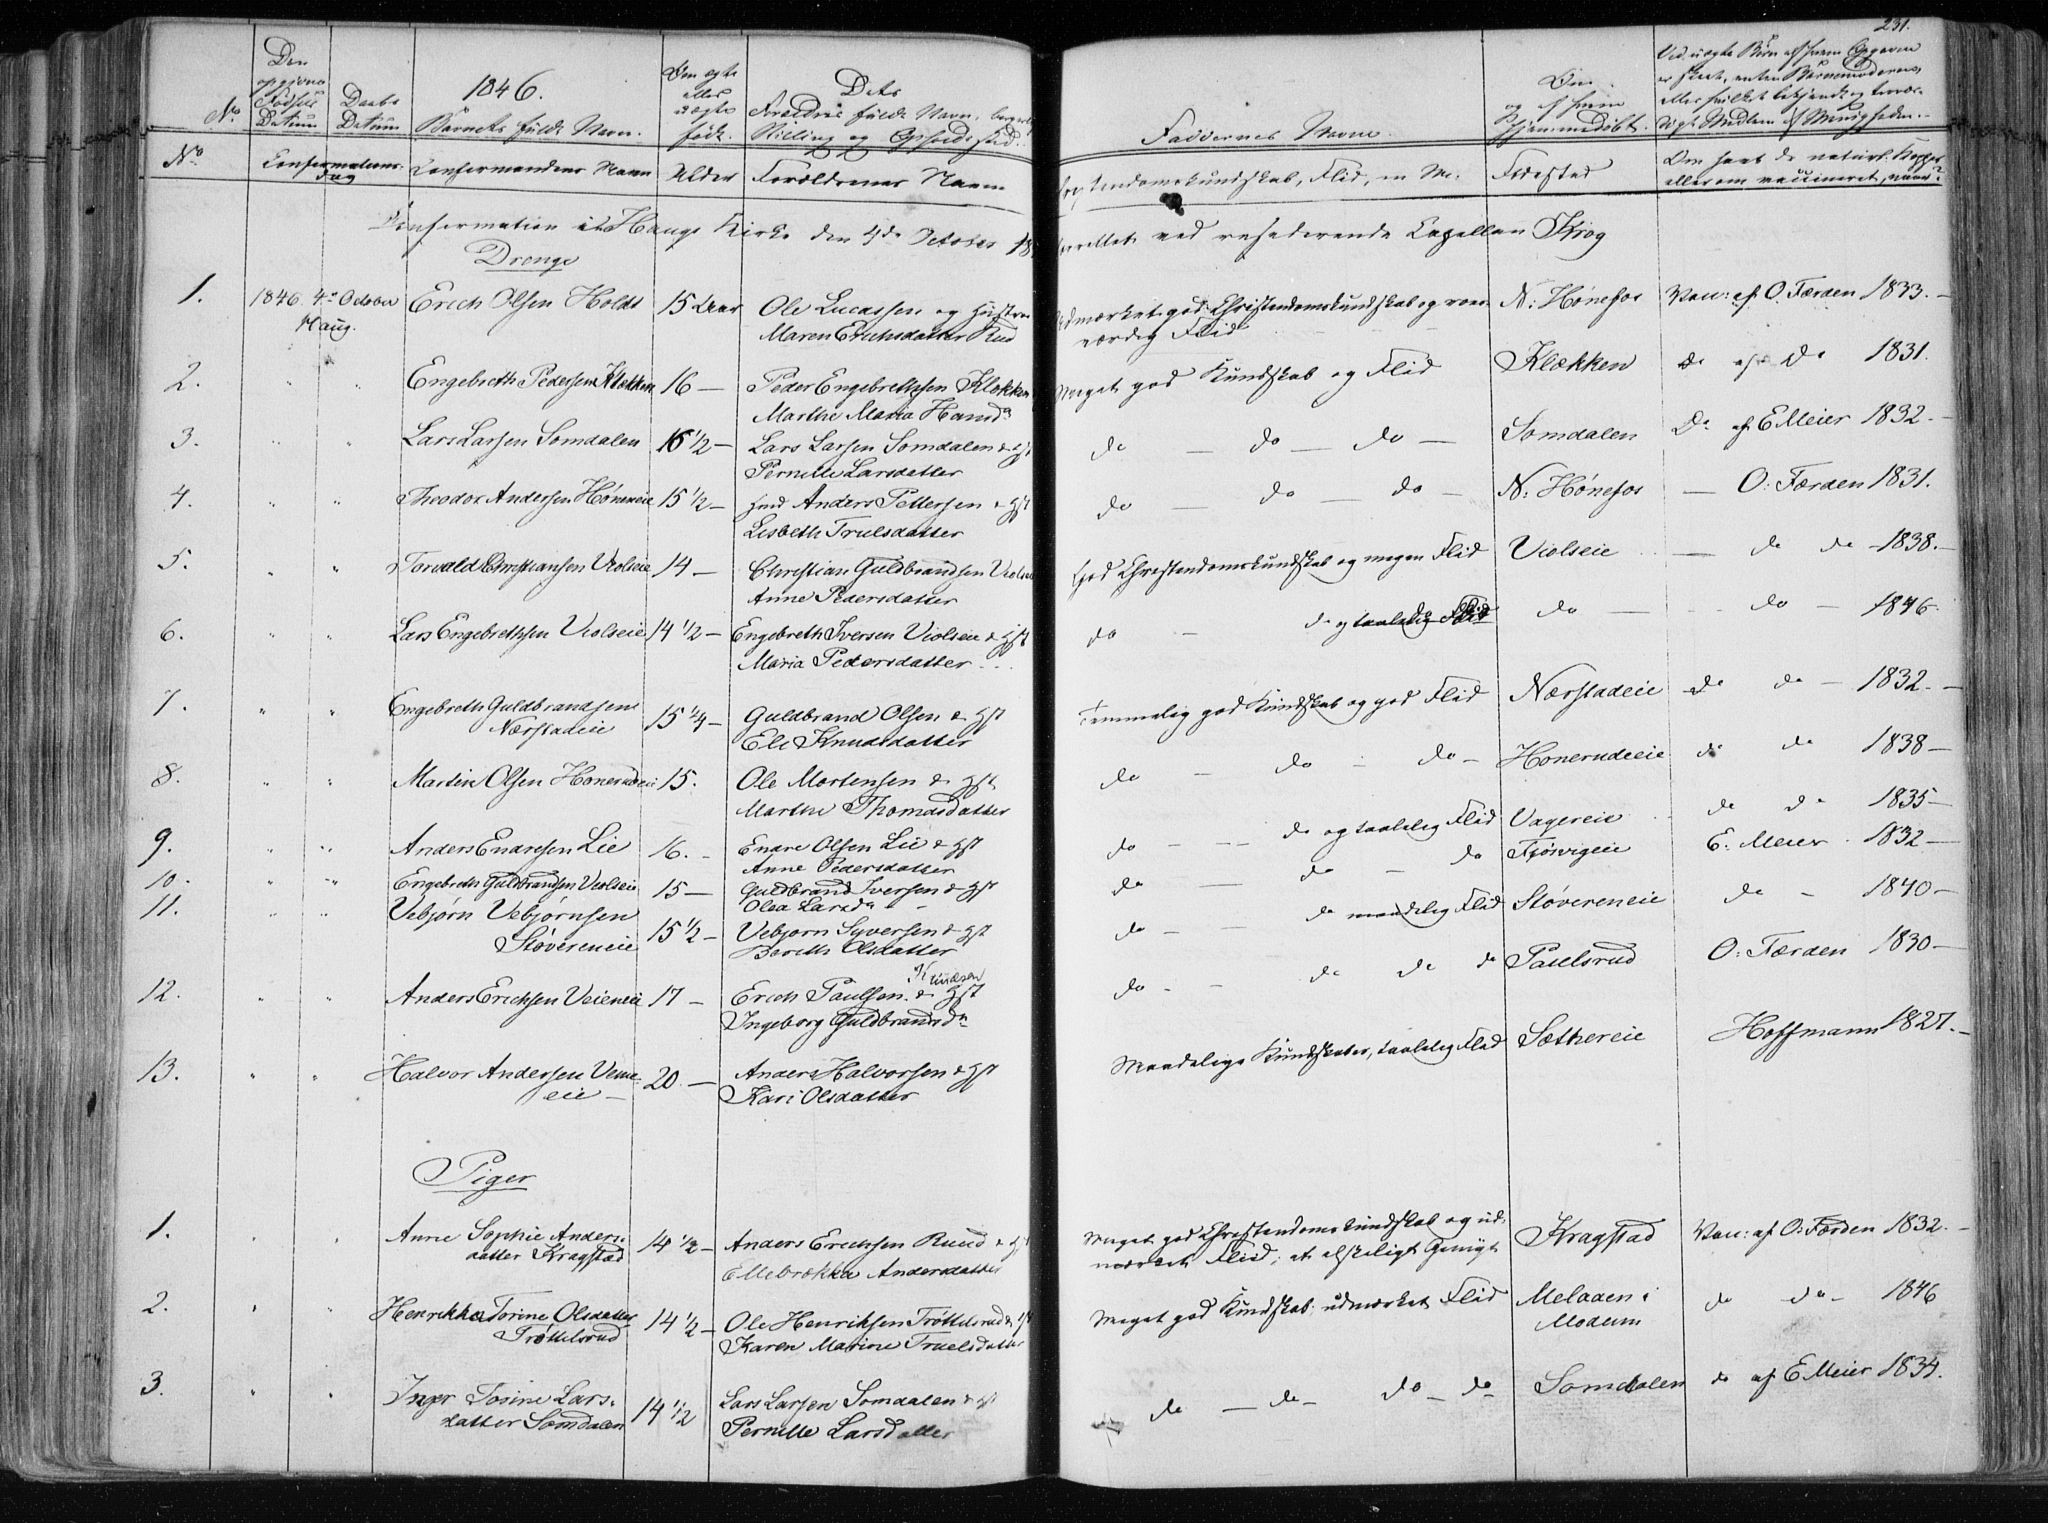 231.
Den opgivne Fødsels Datum
Daabs Datum
1846.
Barnets fulde Navn.
Om ægte eller uægte født.
Dets Forældres fulde Navn, borgerl. Stilling og Opholdssted.
Faddernes Navne.
Om og af hvem hjemmedøbt.
No Confirmations Dag Confirmandens Navn Alder Forældrenes Navn
Christendomskundskab, Flid, m. M. Fødested
Om havt de naturl. Kopper eller om vaccineret, naar?
Confirmation i Haugs Kirke den 4de October 18
forrettet ved residerende Capellan Krog
Drenge
1. 1846. 4de October Haug. Erich Olsen Holdt 15 Aar Ole Lucassen og Hustru
Maren Erichsdatter Rud
Udmærket god Christendomskundskab og
værdig Flid
N: Hønefos Vac: af O. Færden 1833.
2. " " Engebreth Pedersen Klækken 16 — Peder Engebrethsen Klokken
Marthe Maria Hansd
Meget god Kundskab og Flid Klækken do af do 1831.
3. " " Lars Larsen Somdalen 15 1/2 — Lars Larsen Somdalen & Hst
Pernille Larsdatter
do — do — do — Somdalen Do af E Meier 1832.
4. " " Theodor Andersen Høneneie 15 1/2 — Anders Pettersen & Hst
Lisbeth Trulsdatter
do — do — do — N: Hønefos — O: Færden 1831.
5. " " Torvald Christiansen Violseie 14 — Christian Guldbrandsen Violseie
Anne Pedersdatter
God Christendomskundskab og megen Flid Violseie — do do 1838.
6. " " Lars Engebrethsen Violseie 14 1/2 — Engebreth Iversen Violseie & Hst
Maria Pedersdatter
do — do og taalelig Flid do — do — 1846.
7. " " Engebreth Guldbrandsen
Nærstadeie 15 1/4 — Guldbrand Olsen & Hst
Eli Knudsdatter
Temmelig god Kundskab og god Flid Nærstadeie do do — 1832.
8. " " Martin Olsen Honerudeie 15. Ole Mortensen & Hst
Marthe Thomasdatter
do — do — do — Honerudeie do do 1838
9. " " Anders Endresen Lie 16. — Endre Olsen Lie & Hst
Anne Pedersdatter
do — do og taalelig Flid Vagereie do do 1835
10. " " Engebreth Guldbrandsen Violseie 15 — Guldbrand Iversen & Hst
Olea Larsd
do — do — do Fjøsvigeie E. Meier 1832
11. " " Vebjørn Vebjørnsen
Støvereneie 15 1/2 — Vebjørn Syversen & Hst
Berith Olsdatter
do — do maadelig Flid Støvereneie do — 1840
12. " " Anders Erichsen Veieneie 17 — Erich Paulsen Knudsen & Hst
Ingeborg Guldbrandsd
do — do do do Paulsrud O: Færden 1830
13. " " Halvor Andersen Veme
eie — 20 — Anders Halvorsen & Hst
Kari Olsdatter
Maadelige Kundskaber, taalelig Flid Sæthereie Hoffmann 1827.
Piger
1. " " Anne Sophie Anders-
datter Kragstad 14 1/2 — Anders Erichsen Ruud & Hst
Ellebrækka Andersdatter
Meget god Christendomskundskab og ud-
mærket Flid; et elskeligt Gemyt
Kragstad Vac: af O: Færden 1832.
2. " " Henrikka Torine Olsdatter
Trøttelsrud 14 1/2 — Ole Henriksen Trøttelsrud &
Karen Marine Truelsdatter
Meget god Kundskab; udmærket Flid Melaaen i
Modum do do 1846
3. " " Inger Torine Lars-
datter Somdalen 14 1/2 Lars Larsen Somdalen & Hst
Pernille Larsdatter
do — do — do — do Somdalen do af E Meier 1834.